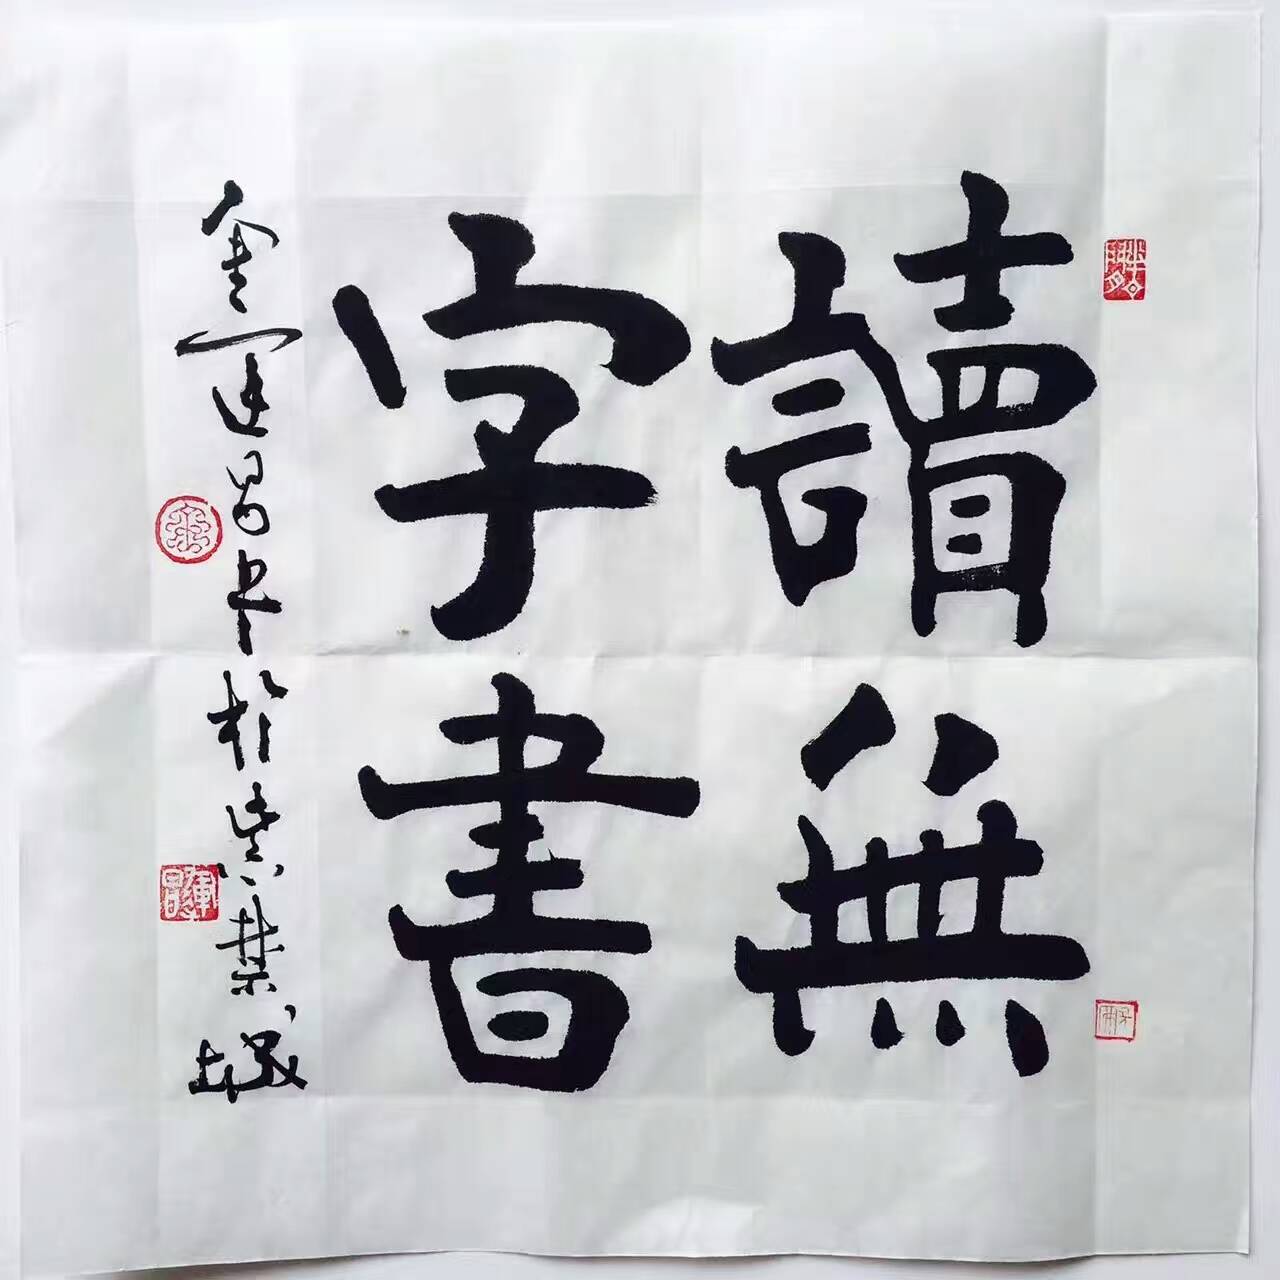 讀無
字書
金運昌書於紫禁城
運昌